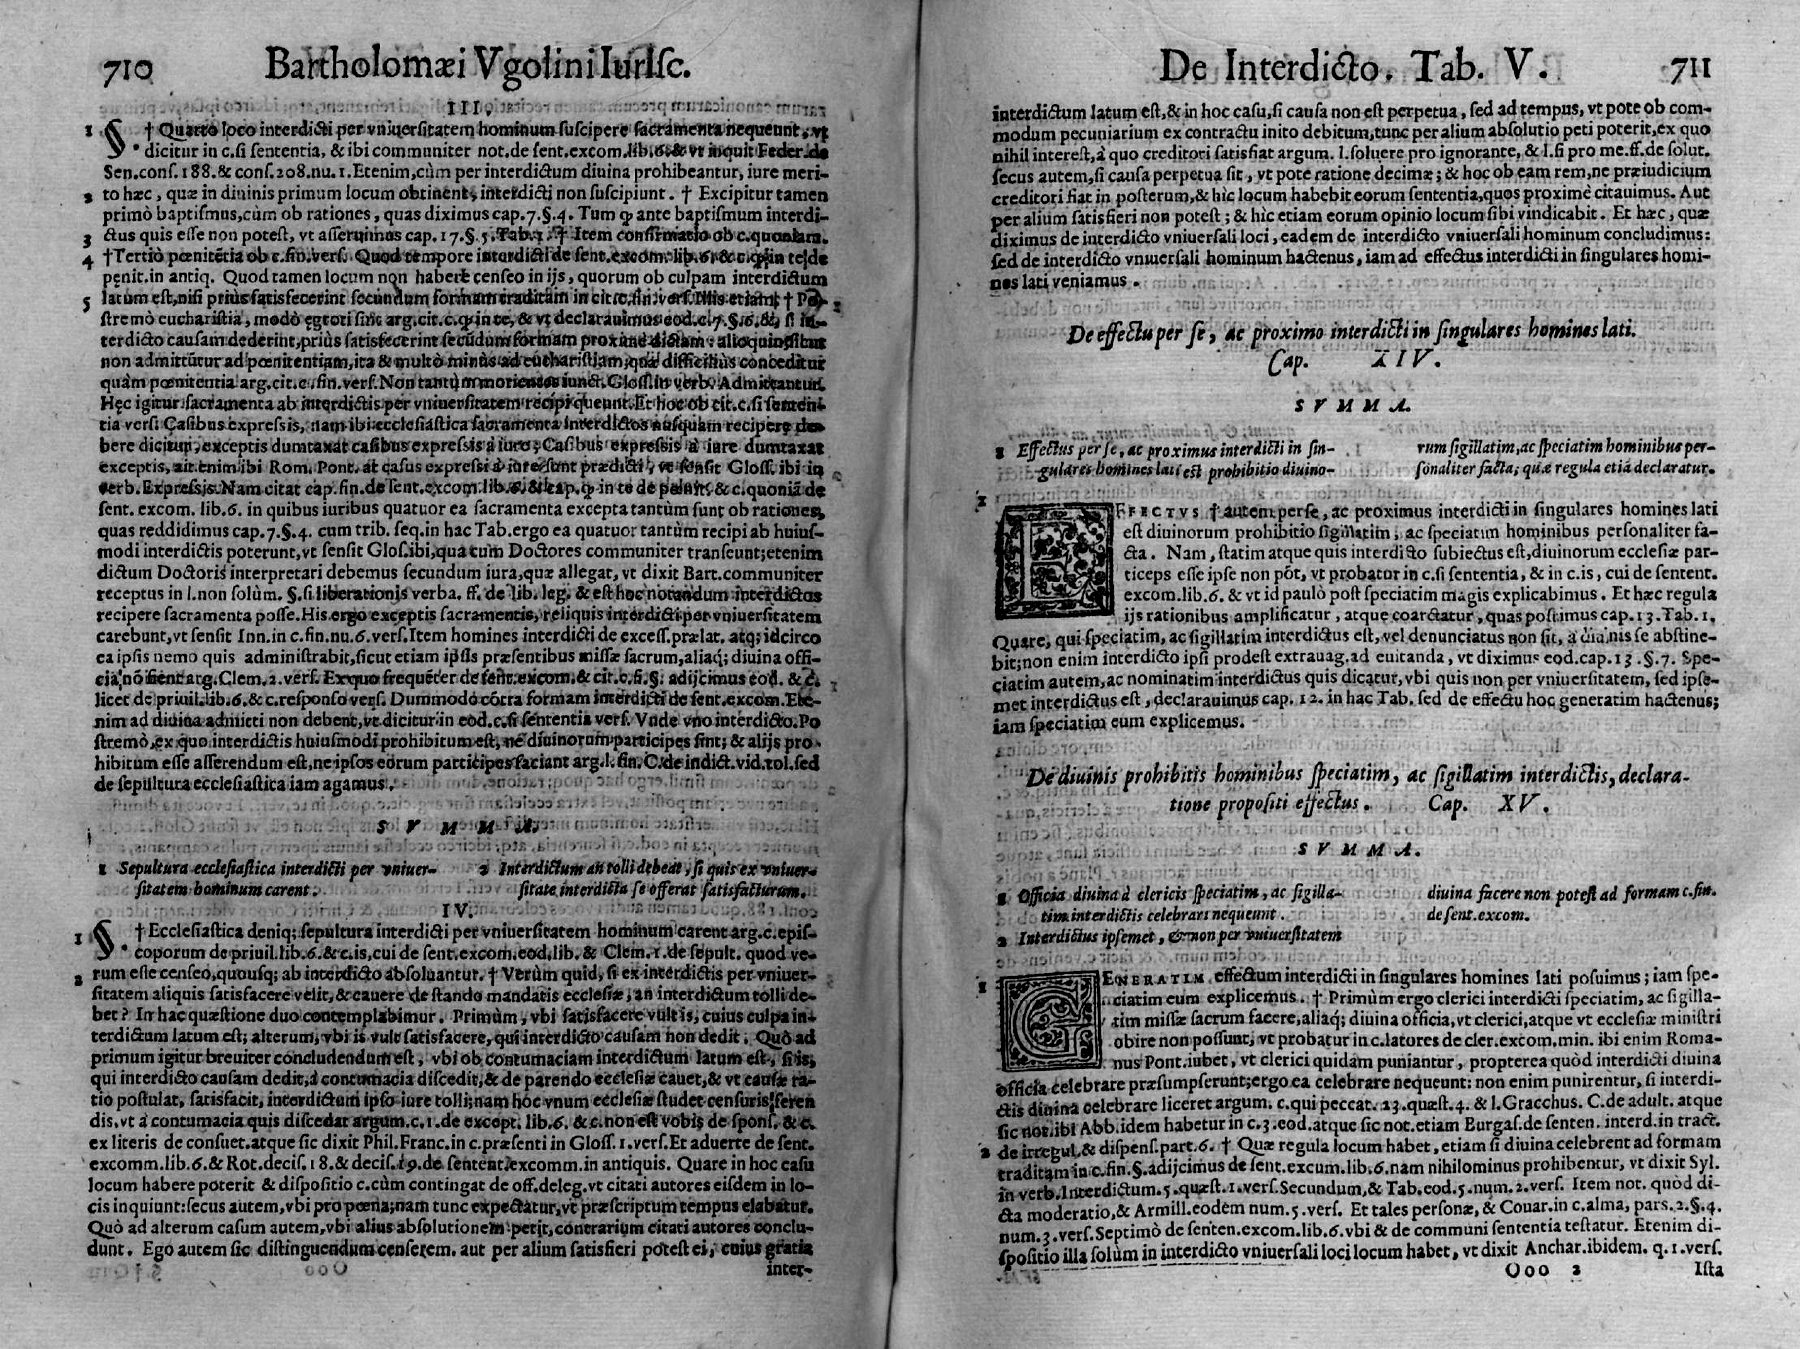 710 Bartholomæi Vgolini IurIsc.
III.
1 §. † Quarto loco interdicti per vniuersitatem hominum suscipere sacramenta nequeunt, vt
dicitur in c.si sententia, & ibi communiter not.de sent.excom.lib.6.& vt inquit Feder.de
Sen.cons.188.& cons.208.nu.1.Etenim,cùm per interdictum diuina prohibeantur, iure meri-
2 to hæc, quæ in diuinis primum locum obtinent, interdicti non suscipiunt. † Excipitur tamen
primò baptismus,cùm ob rationes, quas diximus cap.7.§.4. Tum q; ante baptismum interdi-
3 ctus quis esse non potest, vt asseruimus cap. 17.§.5.Tab.1. † Item confirmatio ob c.quoniam.
4 †Tertiò pœnitẽtia ob c.fin.vers. Quod tempore interdicti de sent.excom.lib.6.& c.q; in te de
pęnit.in antiq. Quod tamen locum non habere censeo in ijs, quorum ob culpam interdictum
5 latum est,nisi priùs satisfecerint secundum formam traditam in cit.c.fin.vers.Illis etiam; † Po-
stremò eucharistia, modò ęgroti sint arg.cit.c.q; in te, & vt declarauimus eod.c.7.§.6.&, si in-
terdicto causam dederint,priùs satisfecerint secũdum formam proximè dictam: alloquin sicut
non admittũtur ad pœnitentiam,ita & multò minùs ad eucharistiam,quæ difficiliùs conceditur
quàm pœnitentia arg.cit.c.fin.vers.Non tantùm morientes iunct.Gloss.in verb. Admittantur.
Hęc igitur sacramenta ab interdictis per vniuersitatem recipi queunt.Et hoc ob cit.c.si senten-
tia vers. Casibus expressis, nam ibi ecclesiastica sacramenta interdictos nusquam recipere de-
bere dicitur, exceptis dumtaxat casibus expressis à iure; Casibus expressis à iure dumtaxat
exceptis, ait enim ibi Rom. Pont. at casus expressi à iure sunt prædicti, vt sensit Gloss. ibi in
verb. Expressis. Nam citat cap. fin.de sent.excom.lib.6.& cap. q; in te de pœnit.& c.quoniã de
sent. excom. lib.6. in quibus iuribus quatuor ea sacramenta excepta tantùm sunt ob rationes,
quas reddidimus cap.7.§.4. cum trib. seq.in hac Tab.ergo ea quatuor tantùm recipi ab huius-
modi interdictis poterunt,vt sensit Glos.ibi,qua cum Doctores communiter transeunt;etenim
dictum Doctoris interpretari debemus secundum iura,quæ allegat, vt dixit Bart.communiter
receptus in l.non solùm. §.si liberationis verba. ff. de lib. leg. & est hoc notandum interdictos
recipere sacramenta posse. His ergo exceptis sacramentis, reliquis interdicti per vniuersitatem
carebunt,vt sensit Inn.in c.fin.nu.6.vers.Item homines interdicti de excess.prælat. atq; idcirco
ea ipsis nemo quis administrabit,sicut etiam ipsis præsentibus missæ sacrum,aliaq; diuina offi-
cia nō fient arg. Clem.2.vers. Exquo frequẽter de sent.excom.& cit.c.fi.§. adijcimus eod. & c.
licet de priuil.lib.6.& c.responso vers. Dummodo cōtra formam interdicti de sent.excom. Ete-
nim ad diuina admitti non debent,vt dicitur in eod.c.si sententia vers. Vnde vno interdicto. Po
stremò,ex quo interdictis huiusmodi prohibitum est, ne diuinorum participes sint; & alijs pro-
hibitum esse asserendum est, ne ipsos eorum participes faciant arg.l.fin. C.de indict.vid.tol.sed
de sepultura ecclesiastica iam agamus.
S V M M A.
1 Sepultura ecclesiastica interdicti per vniuer-
sitatem hominum carent.
2 Interdictum an tolli debeat, si quis ex vniuer-
sitate interdicta se offerat satisfacturum.
IV.
1 §. † Ecclesiastica deniq; sepultura interdicti per vniuersitatem hominum carent arg.c.epis-
coporum de priuil.lib.6.& c.is,cui de sent.excom.eod.lib.& Clem.1.de sepult. quod ve-
2 rum esse censeo,quousq; ab interdicto absoluantur. † Verùm quid, si ex interdictis per vniuer-
sitatem aliquis satisfacere velit,& cauere de stando mandatis ecclesiæ, an interdictum tolli de-
bet? In hac quæstione duo contemplabimur. Primùm, vbi satisfacere vult is, cuius culpa in-
terdictum latum est; alterum, vbi is vult satisfacere, qui interdicto causam non dedit. Quò ad
primum igitur breuiter concludendum est, vbi ob contumaciam interdictum latum est, si is,
qui interdicto causam dedit,à contumacia discedit,& de parendo ecclesiæ cauet,& vt causæ ra-
tio postulat, satisfacit, interdictum ipso iure tolli;nam hoc vnum ecclesiæ studet censuris feren
dis, vt à contumacia quis discedat argum.c.1.de except. lib.6. & c.non est vobis de spons. & c.
ex literis de consuet.atque sic dixit Phil.Franc.in c.præsenti in Gloss.1.vers.Et aduerte de sent.
excomm.lib.6.& Rot.decis.18.& decis.19.de sentent.excomm.in antiquis. Quare in hoc casu
locum habere poterit & dispositio c.cùm contingat de off.deleg.vt citati autores eisdem in lo-
cis inquiunt:secus autem,vbi pro pœna;nam tunc expectatur,vt præscriptum tempus elabatur.
Quò ad alterum casum autem,vbi alius absolutionem petit,contrarium citati autores conclu-
dunt. Ego autem sic distinguendum censerem. aut per alium satisfieri potest ei, cuius gratia
inter-
De Interdicto. Tab. V. 711
interdictum latum est,& in hoc casu,si causa non est perpetua, sed ad tempus, vt pote ob com-
modum pecuniarium ex contractu inito debitum,tunc per alium absolutio peti poterit,ex quo
nihil interest,à quo creditori satisfiat argum. l.soluere pro ignorante, & l.si pro me.ff.de solut.
secus autem,si causa perpetua sit, vt pote ratione decimæ; & hoc ob eam rem,ne præiudicium
creditori fiat in posterum,& hîc locum habebit eorum sententia,quos proximè citauimus. Aut
per alium satisfieri non potest; & hîc etiam eorum opinio locum sibi vindicabit. Et hæc, quæ
diximus de interdicto vniuersali loci, eadem de interdicto vniuersali hominum concludimus:
sed de interdicto vniuersali hominum hactenus, iam ad effectus interdicti in singulares homi-
nes lati veniamus.
De effectu per se, ac proximo interdicti in singulares homines lati.
Cap. XIV.
S V M M A.
1 Effectus per se, ac proximus interdicti in sin-
gulares homines lati est prohibitio diuino-
rum sigillatim, ac speciatim hominibus per-
sonaliter facta; quæ regula etiã declaratur.
1 EFFECTVS † autem per se, ac proximus interdicti in singulares homines lati
est diuinorum prohibitio sigillatim, ac speciatim hominibus personaliter fa-
cta. Nam, statim atque quis interdicto subiectus est,diuinorum ecclesiæ par-
ticeps esse ipse non põt, vt probatur in c.si sententia, & in c.is, cui de sentent.
excom.lib.6. & vt id paulò post speciatim magis explicabimus. Et hæc regula
ijs rationibus amplificatur, atque coarctatur, quas posuimus cap.13.Tab.1.
Quare, qui speciatim, ac sigillatim interdictus est, vel denunciatus non sit, à diuinis se abstine-
bit;non enim interdicto ipsi prodest extrauag.ad euitanda, vt diximus eod.cap.13.§.7. Spe-
ciatim autem, ac nominatim interdictus quis dicatur, vbi quis non per vniuersitatem, sed ipse-
met interdictus est, declarauimus cap. 12. in hac Tab. sed de effectu hoc generatim hactenus;
iam speciatim eum explicemus.
De diuinis prohibitis hominibus speciatim, ac sigillatim interdictis, declara-
tione propositi effectus. Cap. XV.
S V M M A.
1 Officia diuina à clericis speciatim, ac sigilla-
tim interdictis celebrari nequeunt.
2 Interdictus ipsemet, & non per vniuersitatem
diuina facere non potest ad formam c.fin.
de sent.excom.
1 GENERATIM effectum interdicti in singulares homines lati posuimus; iam spe-
ciatim eum explicemus. † Primùm ergo clerici interdicti speciatim, ac sigilla-
tim missæ sacrum facere,aliaq; diuina officia, vt clerici, atque vt ecclesiæ ministri
obire non possunt, vt probatur in c.latores de cler.excom.min. ibi enim Roma-
nus Pont.iubet, vt clerici quidam puniantur, propterea quòd interdicti diuina
officia celebrare præsumpserunt;ergo ea celebrare nequeunt: non enim punirentur, si interdi-
ctis diuina celebrare liceret argum. c.qui peccat. 23.quæst.4. & l.Gracchus. C.de adult. atque
sic not.ibi Abb.idem habetur in c.3.eod.atque sic not.etiam Burgas.de senten. interd.in tract.
2 de irregul.& dispens.part.6. † Quæ regula locum habet, etiam si diuina celebrent ad formam
traditam in c.fin.§.adijcimus de sent.excum.lib.6.nam nihilominus prohibentur, vt dixit Syl.
in verb.Interdictum.5.quæst.1.vers.Secundum,& Tab.eod.5.num.2.vers. Item not. quòd di-
cta moderatio,& Armill.eodem num.5.vers. Et tales personæ, & Couar.in c.alma, pars.2.§.4.
num.3.vers.Septimò de senten.excom.lib.6.vbi & de communi sententia testatur. Etenim di-
spositio illa solùm in interdicto vniuersali loci locum habet, vt dixit Anchar.ibidem. q.1.vers.
Ooo 2 Ista